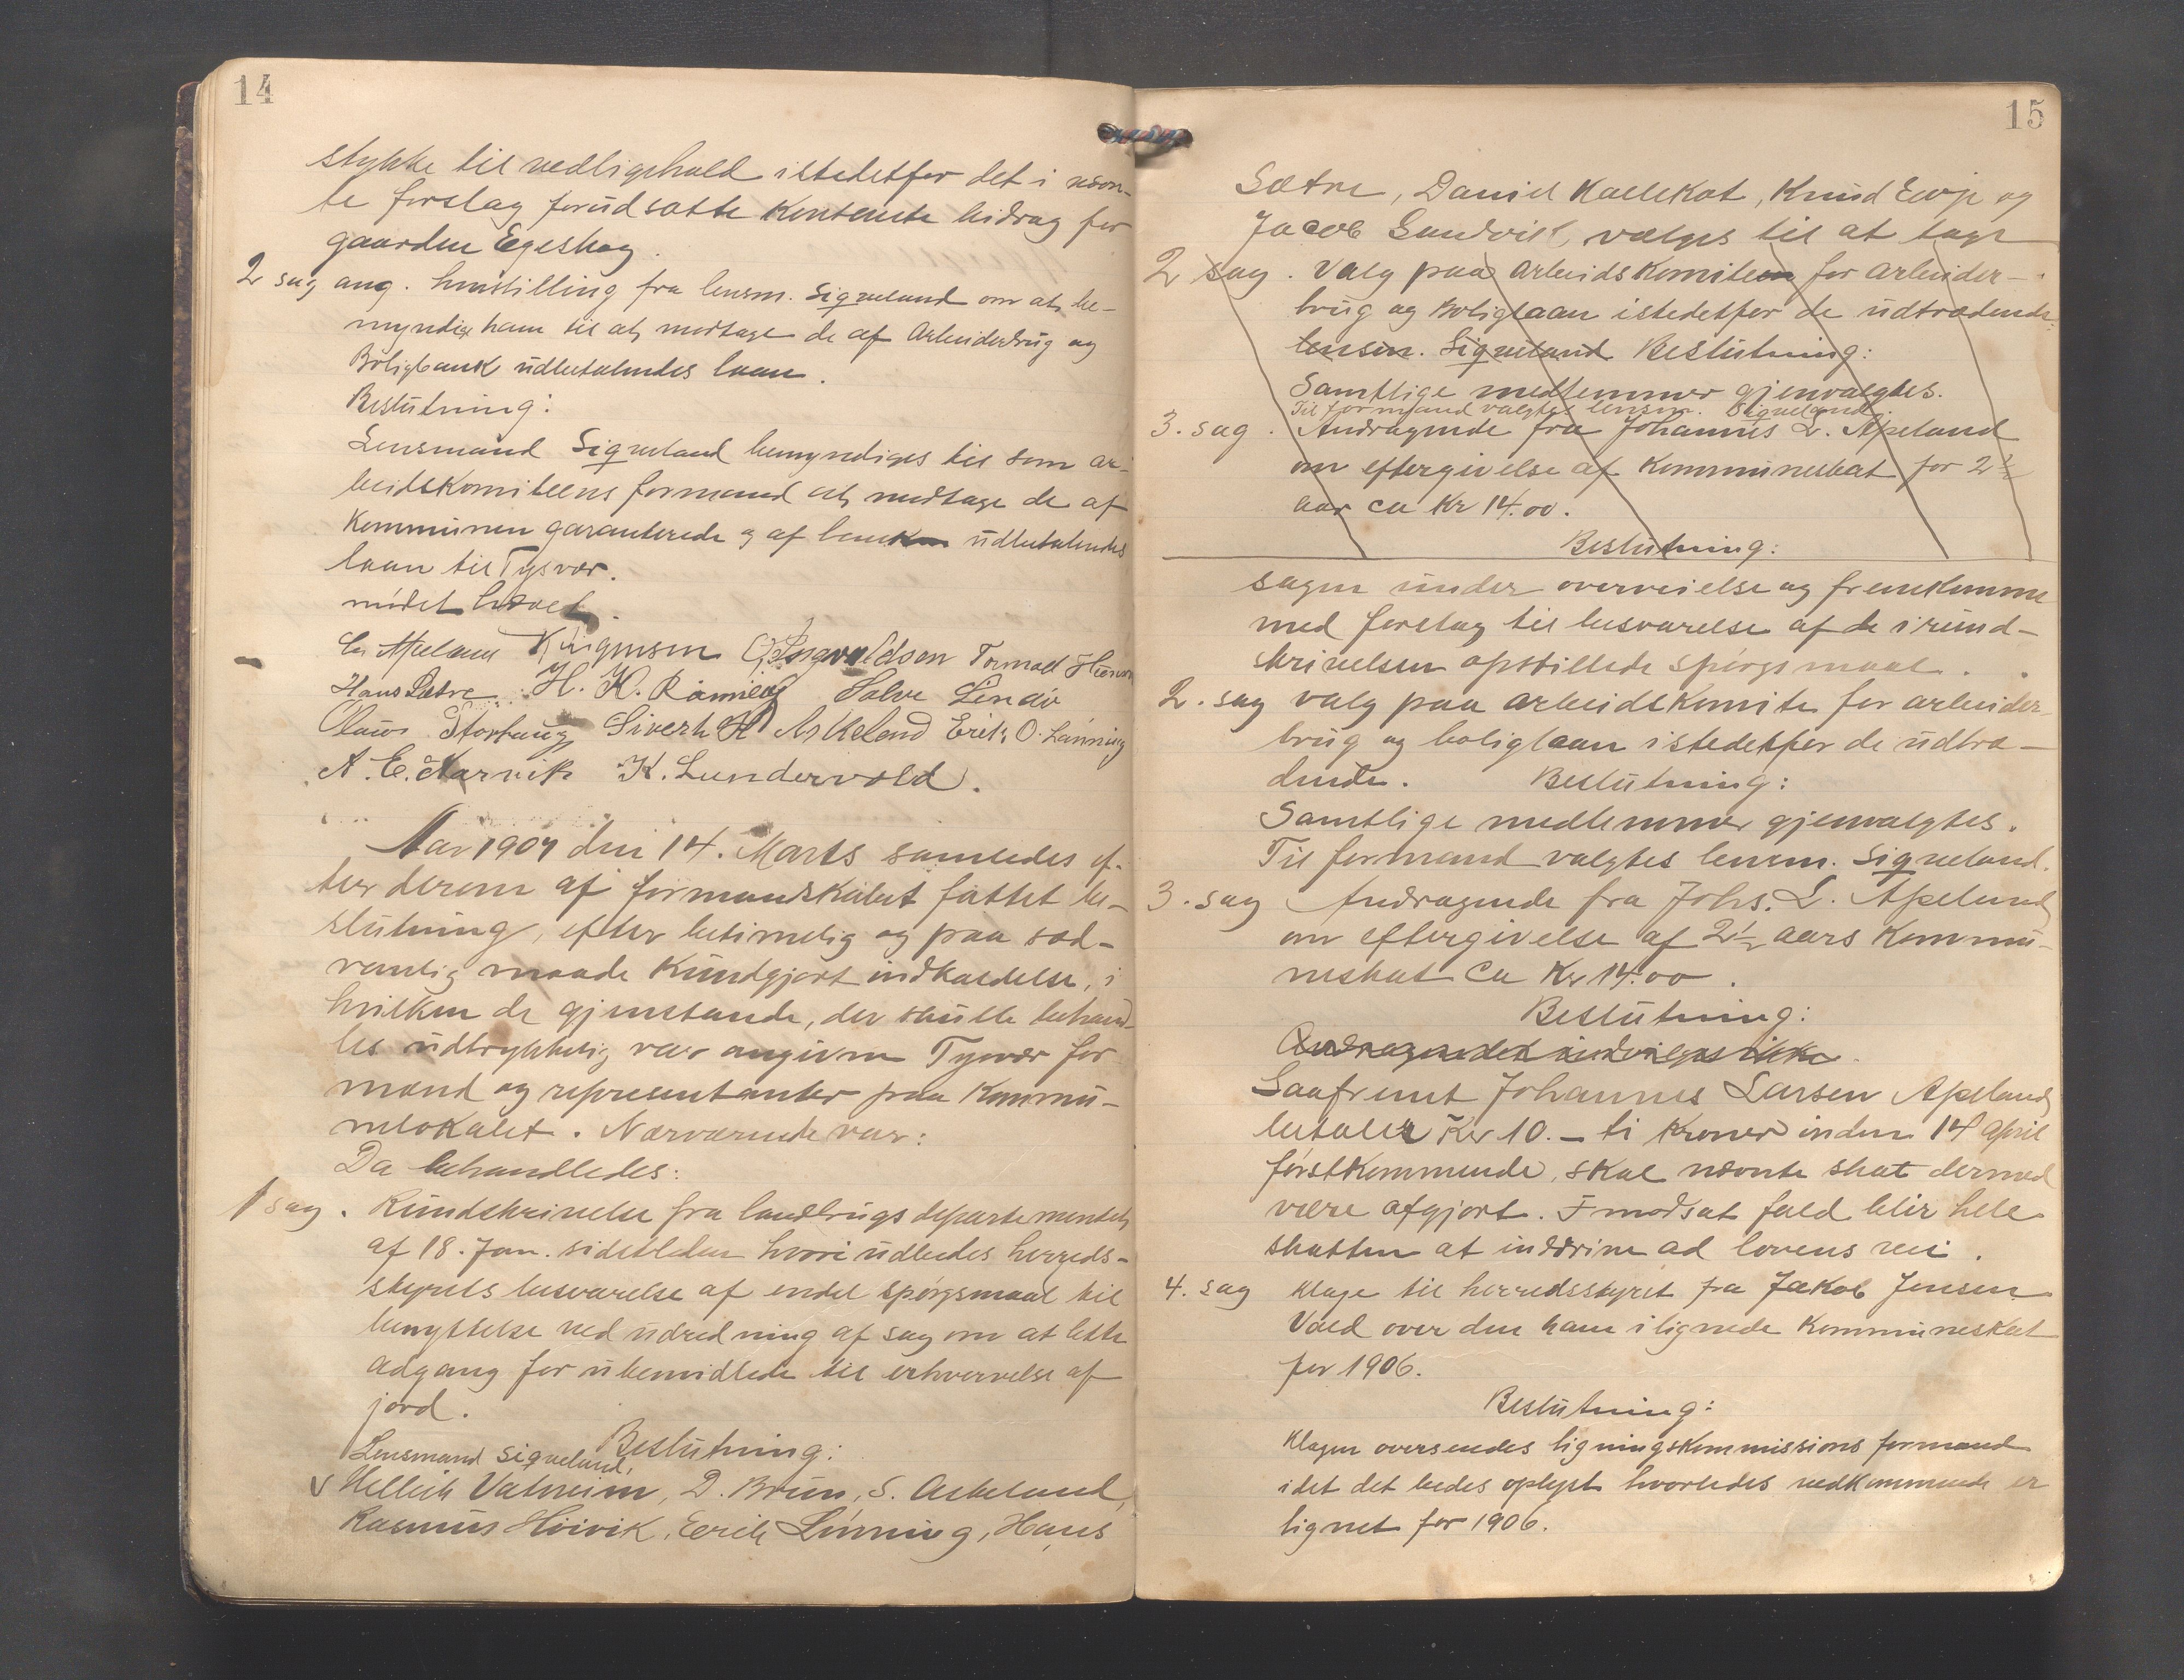 14
stykke til vedligehold istedetfor det i nævn-
te forslag forudsatte kontante bidrag for
gaarden Egeskog.
2 sag ang. henstilling fra lensm. Siqueland om at be-
myndige ham til at mottage de af Arbeiderbrug og
Boligbank udbetalendes laan.
Beslutning:
Lensmand Siqueland bemyndiges til som ar-
beidskomiteens formand at modtage de af
Kommunen garanterede og af banken udbetalendes
laan til Tysvær.
mødet hævet.
L. Apeland K Ingmson O. Ingvaldsen Tormod
Hans Sætre H. H. Ramvig Salve Lindø
Olaus Storhaug Sivert H Askeland Erik O. Lønning
A. E. Karvik K. Lundervold.
Aar 1907 den 14. Marts samledes ef-
ter derom af formandskabet fattet be-
slutning, efter betimelig og paa sæd-
vanlig maade kundgjort indkaldelse, i
hvilken de gjenstande, der skulle behand-
les udtrykkelig var angiven Tysvær for
mænd og representanter paa Kommu-
nelokalet. Nærværende var:
Da behandledes:
1 sag. Rundskrivelse fra landbrugsdepartementet
af 18. Jan. sidstleden hvori udbedes herreds-
styrets besvarelse af endel spørgsmaal til
benyttelse ved udredning af sag om at lette
adgang for ubemidlede til erhvervelse af
jord.
Beslutning:
Lensmand Siqueland,
V Mellich Vatneim, D. Brun, S. Askeland,
Rasmus Høivik, Erik Lønning, Hans
15
Sætre, Daniel Kallekot, Knud Evje og
Jacob Sandvik, vælges til at tage
2 sag. Valg paa Arbeidskomiteen for arbeider-
brug og Boliglaan istedetfor de udtrædende
lensm. Siqueland Beslutning:
Samtlige medlemmer gjenvalgtes.
Til formand valgtes lensm. Siqueland.
3. sag. Andragende fra Johannes L. Apeland
om eftergivelse af Kommuneskat for 2½
aar ca Kr 14.00.
Beslutning:
sagen under overveielse og fremkomme
med forslag til besvarelse af de i rund-
skrivelsen opstillede spørgsmaal.
2. sag valg paa arbeidskomite for arbeider-
brug og boliglaan istedetfor de udtræ-
dende. Beslutning:
Samtlige medlemmer gjenvalgtes.
Til formand valgtes lensm. Siqueland.
3. sag Andragende fra Johs. L. Apeland
om eftergivelse af 2½ aars Kommu-
neskat ca Kr 14.00.
Beslutning:
Andragendet indvilges ikke.
Saafremt Johannes Larsen Apeland
betaler Kr 10.– ti Kroner inden 14 April
førstkommende, skal nævnte skat dermed
være afgjort. I modsat fald blir hele
skatten at inddrive ad lovens vei.
4. sag Klage til herredsstyret fra Jakob Jensen
Vaed over den ham ilignede Kommuneskat
for 1906.
Beslutning:
Klagen oversendes ligningskommissions formand
idet det bedes oplyst hvorledes vedkommende er
lignet for 1906.